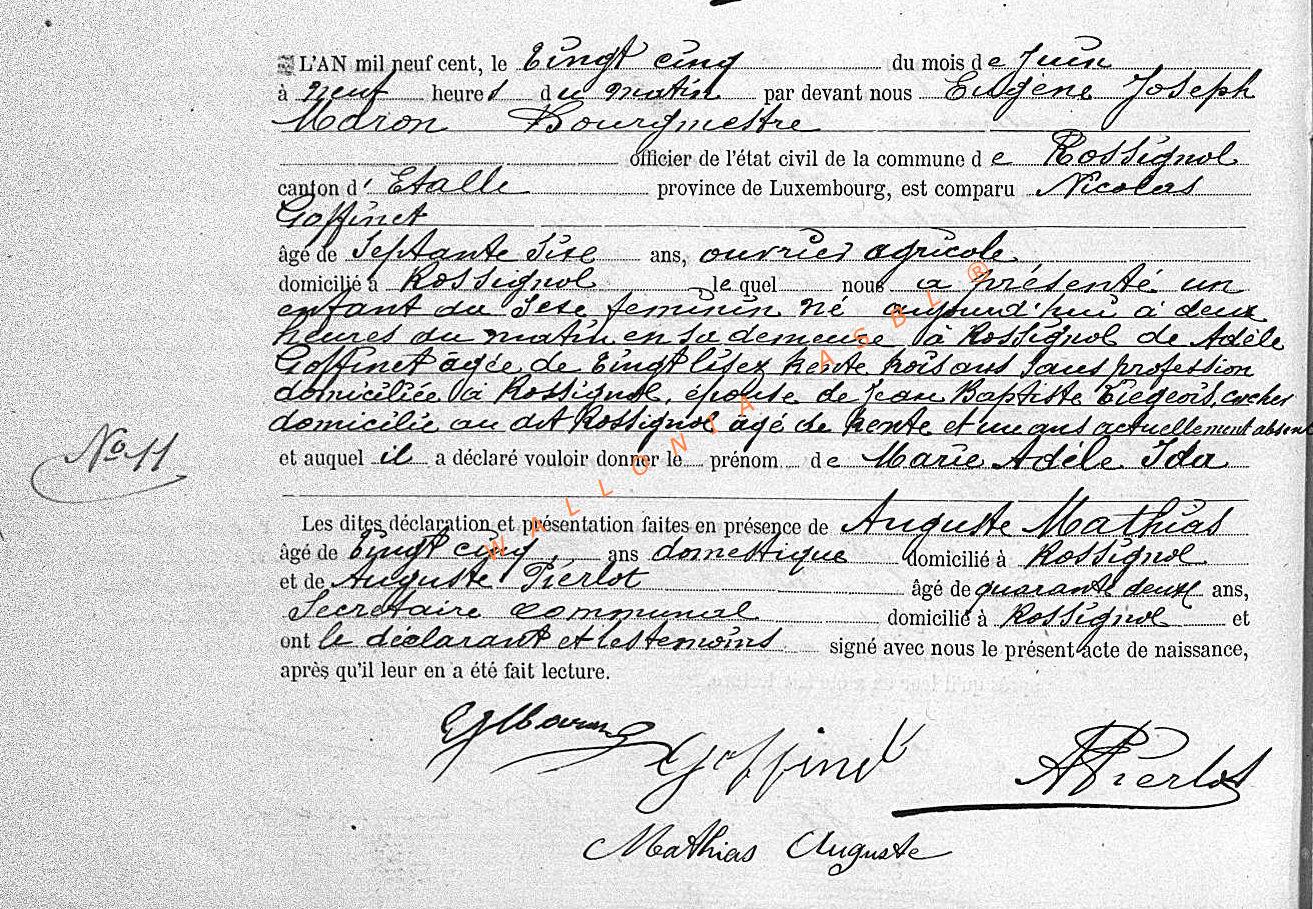 L'AN mil neuf cent, le Vingt cinq du mois de Juin
à neuf heures du matin par devant nous Eugène Joseph
Maron Bourgmestre
officier de l'état civil de la commune de Rossignol
canton d' Etalle province de Luxembourg, est comparu Nicolas
Goffinet
âgé de Septante Six ans, ouvrier agricole
domicilié à Rossignol le quel nous a présenté un
enfant du Sexe feminin né aujourd'hui à deux
heures du matin en sa demeure à Rossignol de Adèle
Goffinet âgée de Vingt lisez trente trois ans Sans profession
domiciliée à Rossignol, épouse de Jean Baptiste Liegeois, cocher
domicilié au dit Rossignol âgé de trente et un ans actuellement absent
No 11
et auquel il a déclaré vouloir donner le prénom de Marie Adèle Ida
Les dites déclaration et présentation faites en présence de Auguste Mathias
âgé de Vingt cinq ans domestique domicilié à Rossignol
et de Auguste Pierlot âgé de quarante deux ans,
Secrétaire communal domicilié à Rossignol et
ont le déclarant et les temoins signé avec nous le présent acte de naissance,
après qu'il leur en a été fait lecture.
EJMaron Goffinet APierlot
Mathias Auguste
WALLONIA ASBL ®